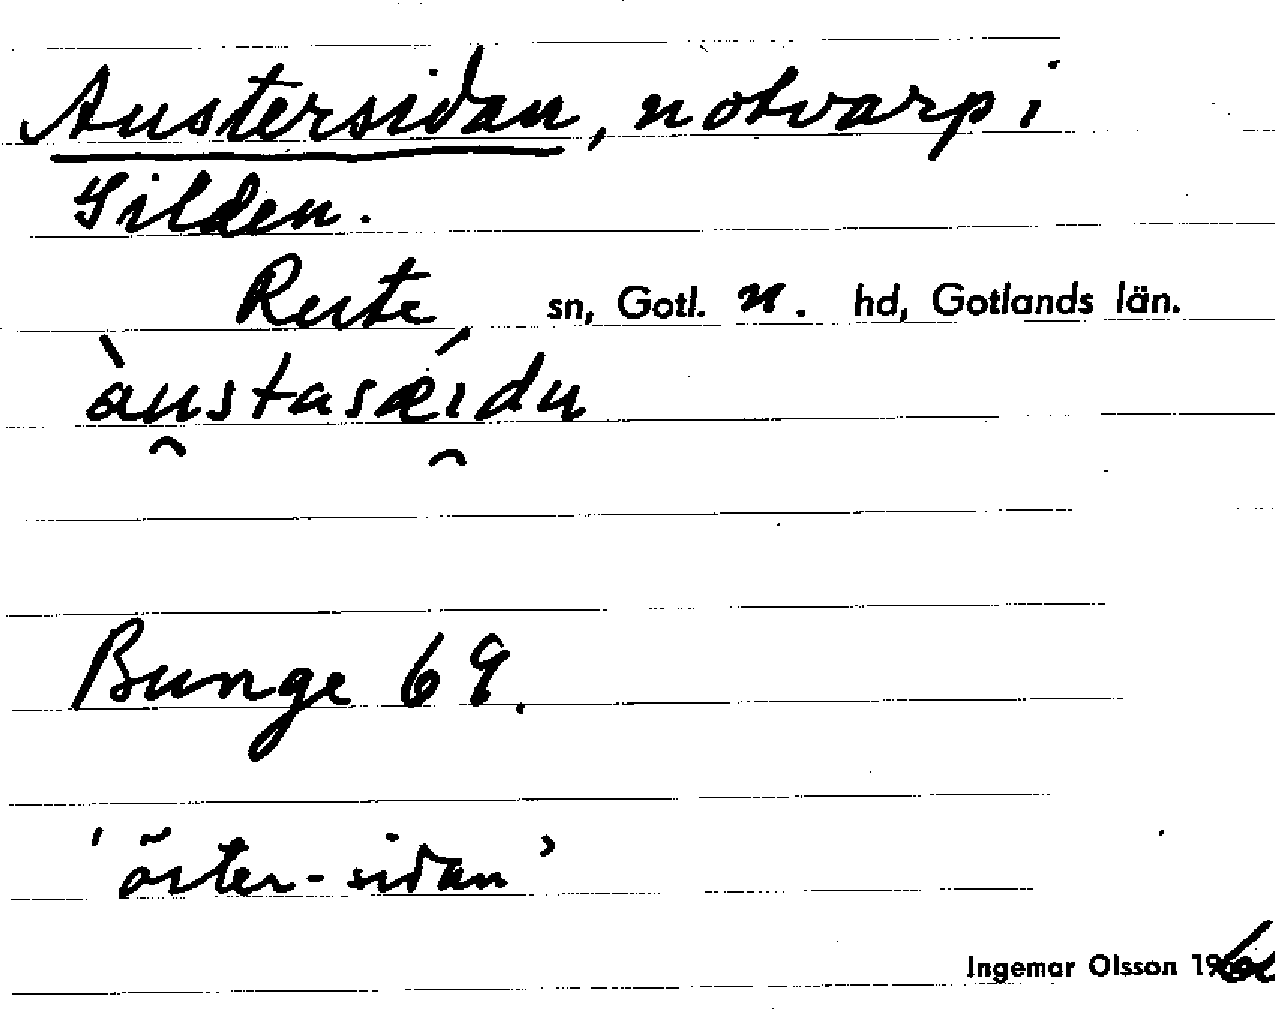 Austersidan, notvarp i
Gilden.
Rute, sn, Gotl. n. hd, Gotlands län.
àu̯stasǽi̯du
Bunge 69.
'öster-sidan'
Ingemar Olsson